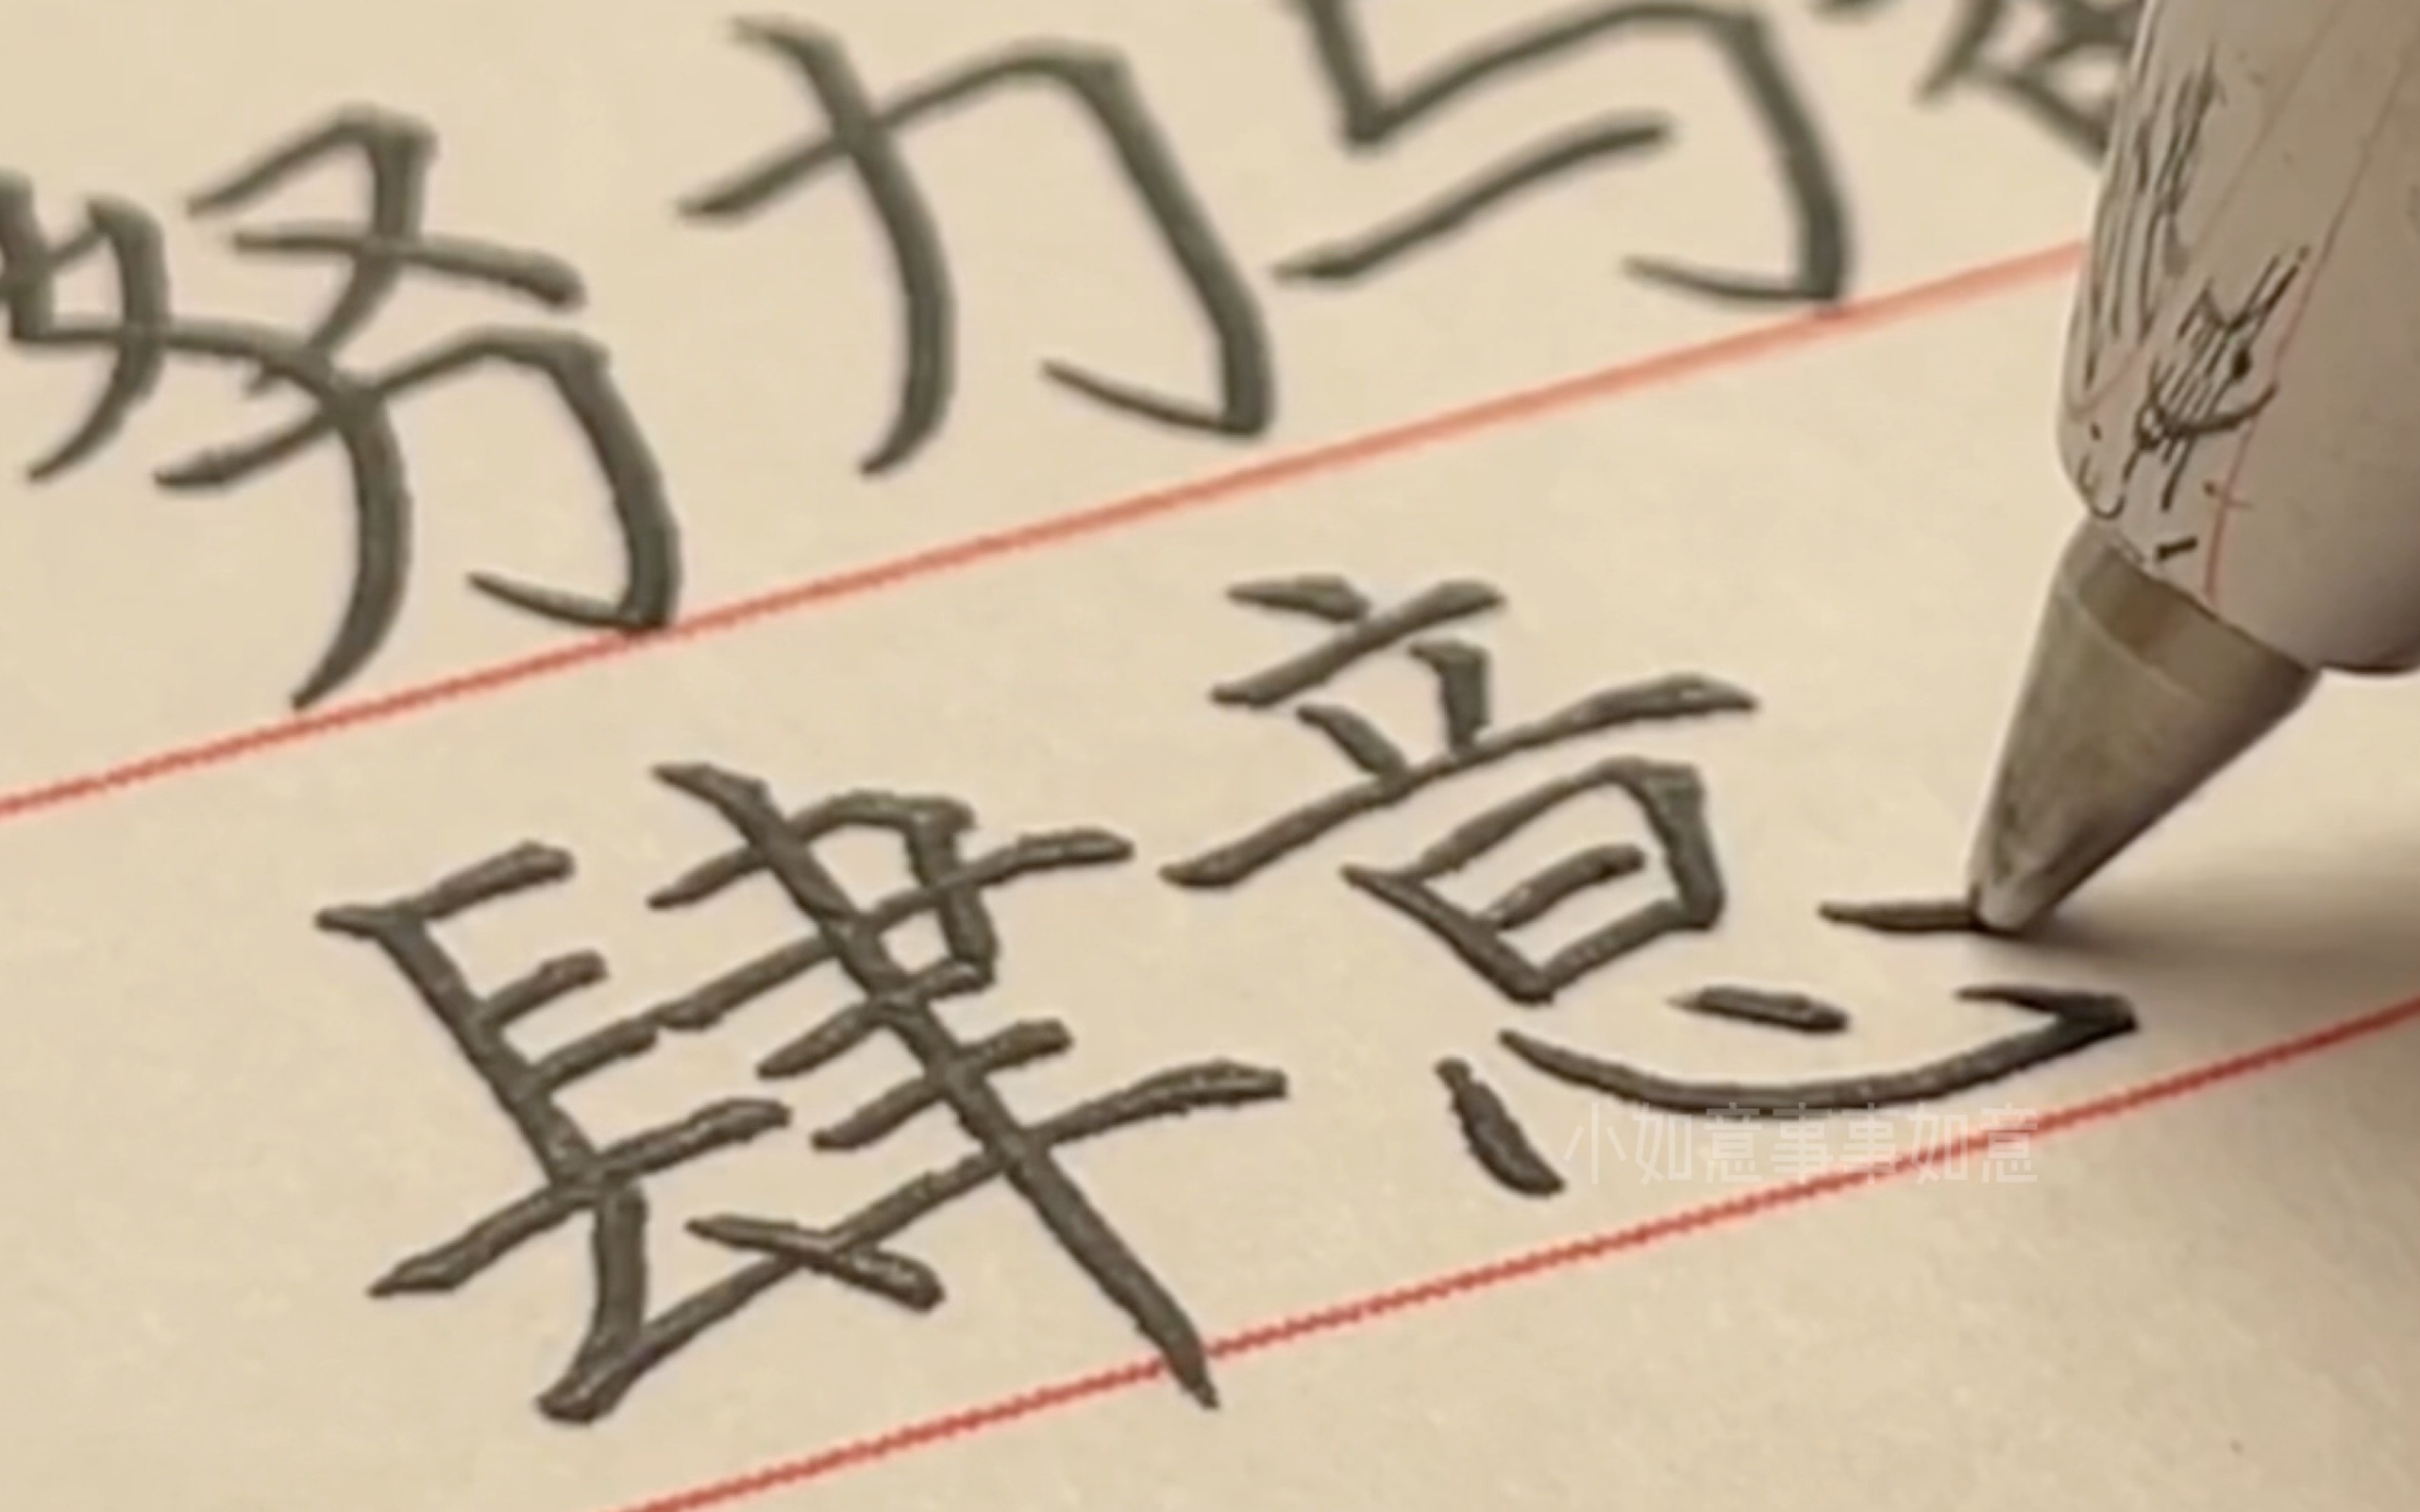 努力与
肆意
小如意事事如意